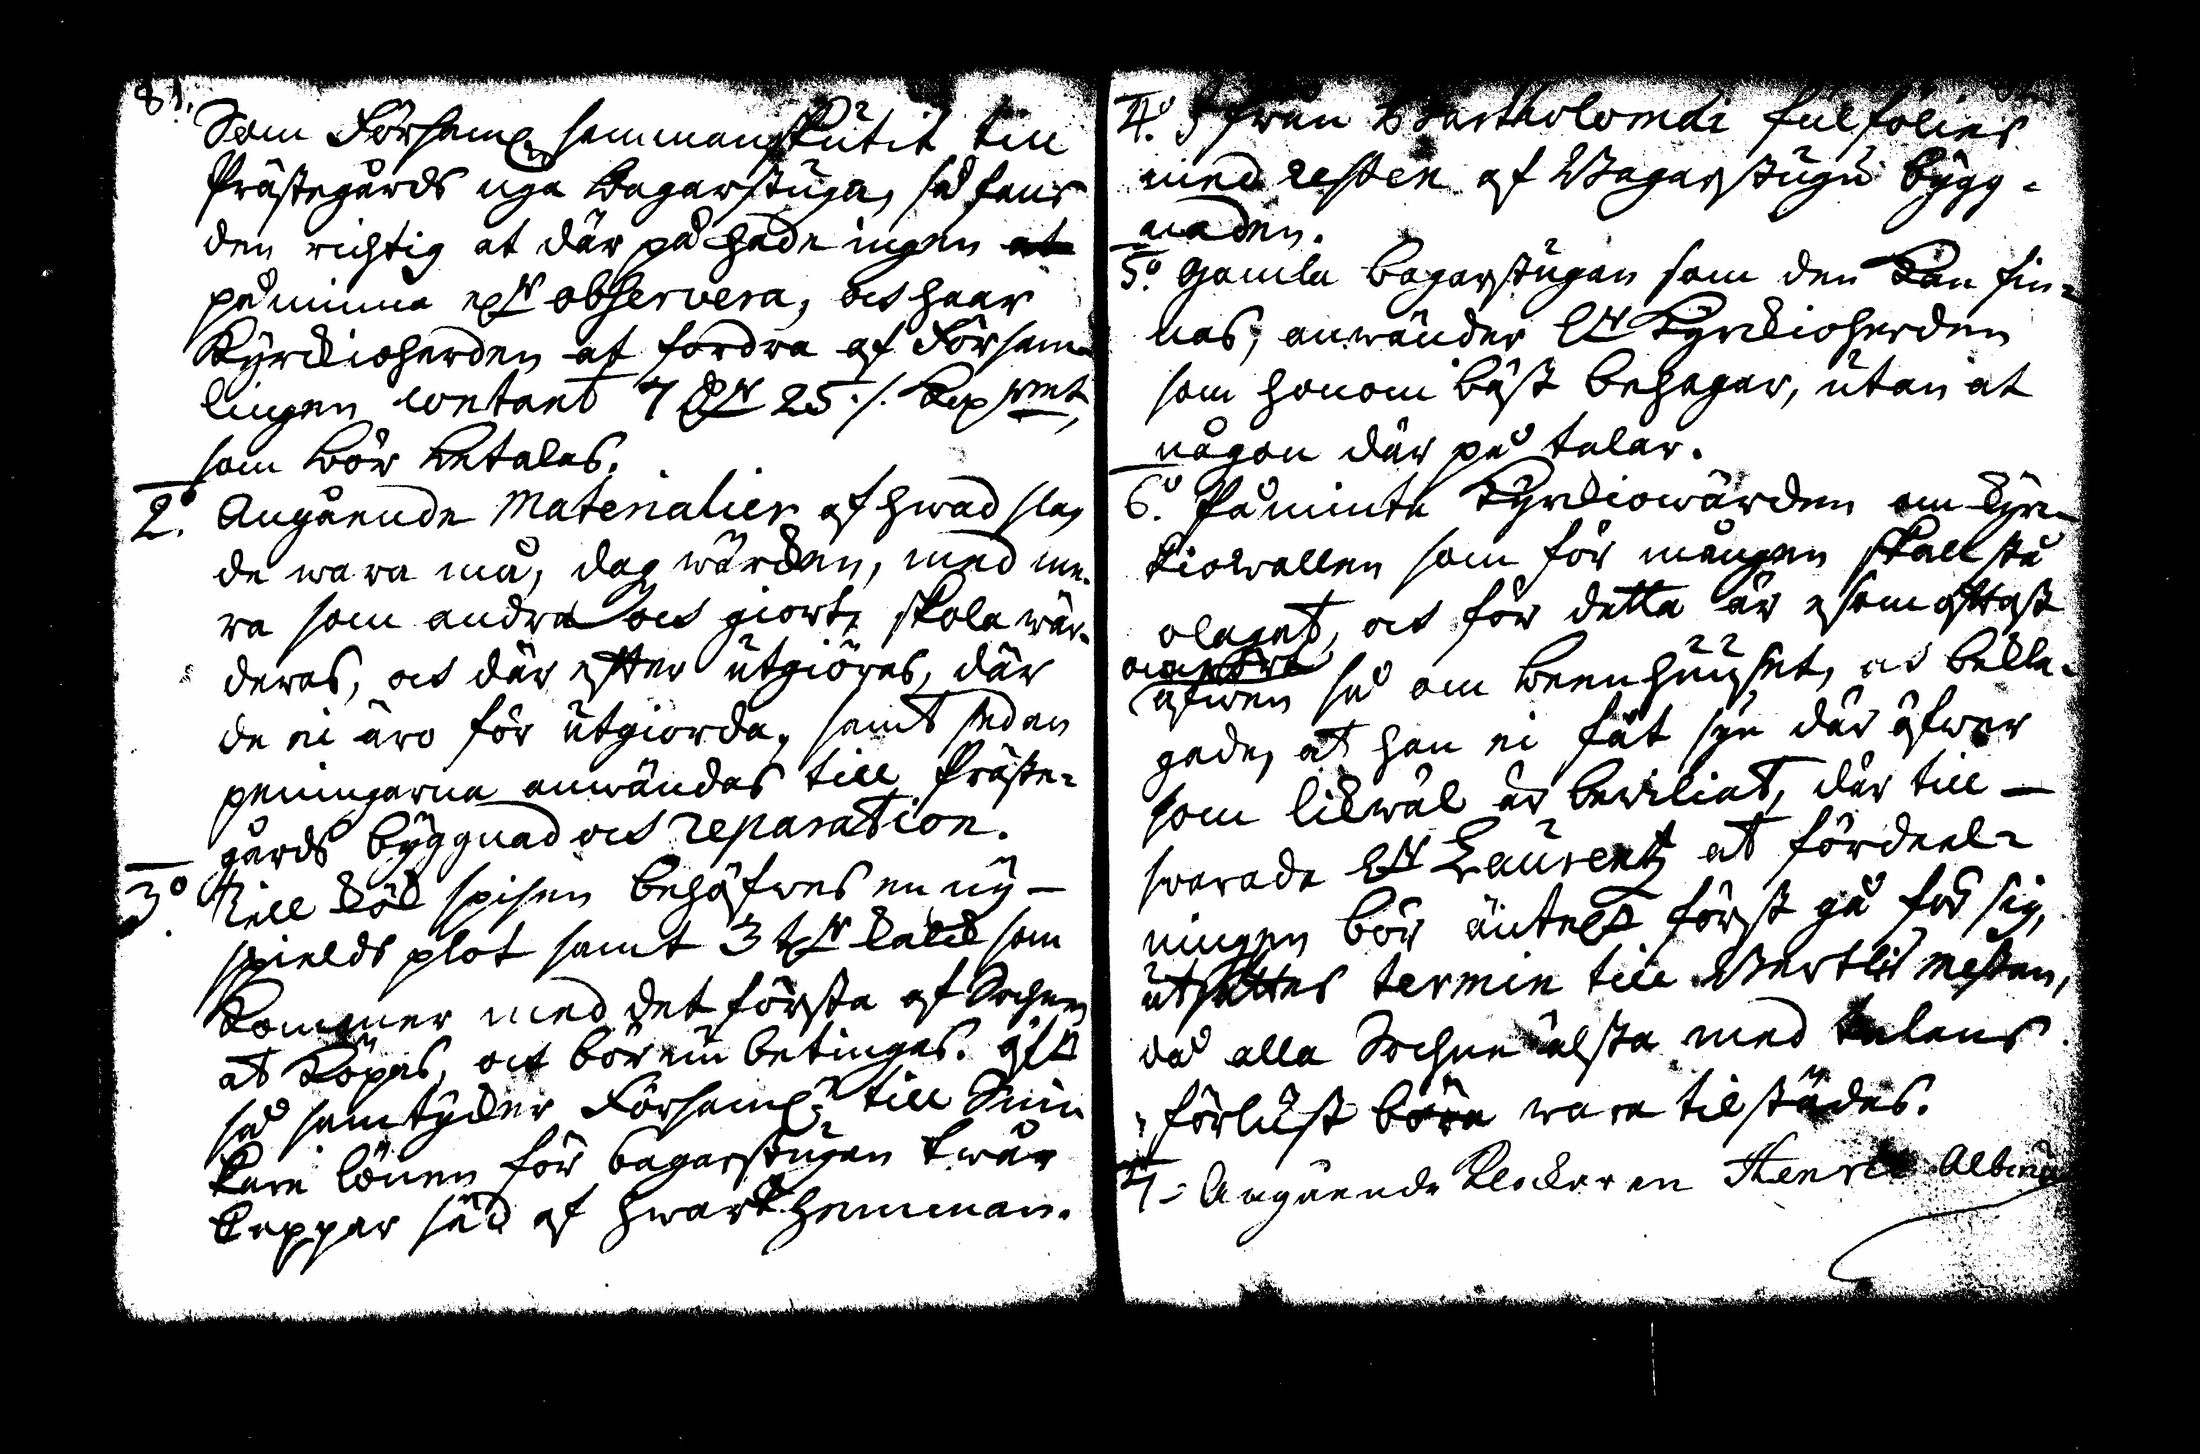 81.
Som Församl:n sammanskutit till
Prästegårds nya Bagarstuga, så fans
den richtig at där på hade ingen at
påminna elr observera, och haar
Kyrckioherden at fordra af Försam-
lingen contant 7 Dlr 25 ./. Kopmt,
som bör betalas.
2o. Angående Materialier af hwad slag
de wara må, dagzwärcken, med me-
ra som andra och giort, skola wär-
deras, och där efter utgiöras, där
de ei äro för utgiorda, samt sedan
peningarna anwändas till Präste-
gårds byggnad och reparation.
3o. Till kök spisen behöfwes en ny
spields plåt samt 3 tr kalck som
kommer med det första af Sochnen
at köpas, och bör nu betingas. äfw
så samtycker Församl:n till Snic
kare lönen för bagarstugan twår
kappar säd af hwart hemman.
4o. Ifrån Bartholomæi fulföljes
med resten af Bagarstugu bygg-
naden.
5o. Gamla bagarstugan som den kan fin-
nas, anwänder Hr Kyrckioherden
som honom bäst behagar, utan at
någon där på talar.
6o. Påminte Kyrckiowärden om kyrc-
kiowallen som för mången skall stå
olagat, och för detta är esomoftast
äfwen så om beenhuuset, och bekla-
gade, at han ei fåt syn där öfwer
som likwäl är bewiliat, där till
swarade Hr Laurentz at fördeel-
ningen bör äntel. först gå för sig,
utsattes termin till Bertels messan,
då alla Sochne älsta med talans
förlust böra wara tilstädes.
7. Angående Klockaren Henric Albin